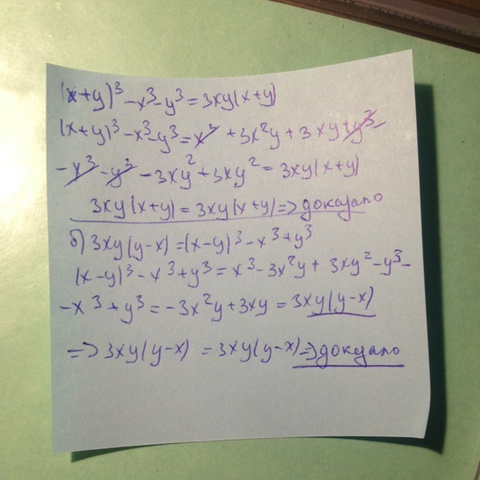 (x+y)³-x³-y³=3xy(x+y)
(x+y)³-x³-y³=x³+3x²y+3xy+y³-
-x³-y³-3xy²+3xy²=3xy(x+y)
3xy(x+y)=3xy(x+y)=>доказано
б) 3xy(y-x)=(x-y)³-x³+y³
(x-y)³-x³+y³=x³-3x²y+3xy²-y³-
-x³+y³=-3x²y+3xy=3xy(y-x)
=>3xy(y-x)=3xy(y-x)=>доказано